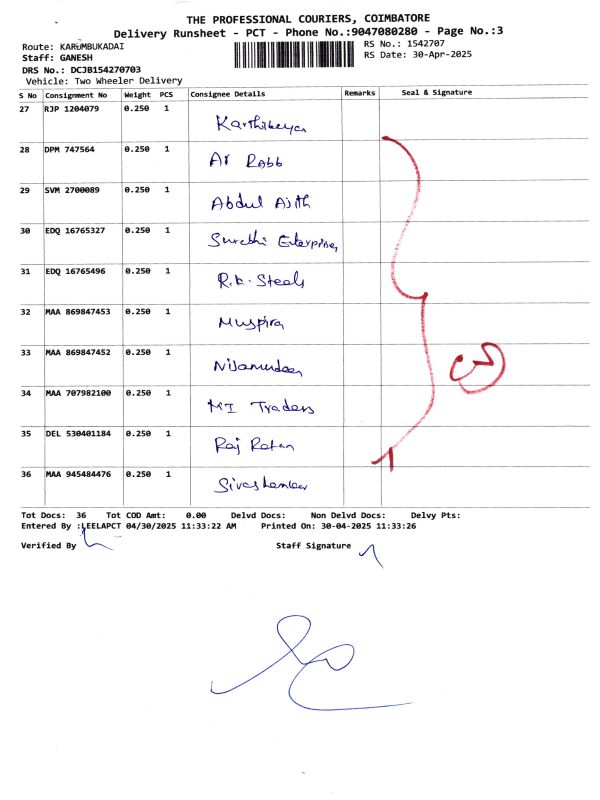 THE PROFESSIONAL COURIERS, COIMBATORE
Delivery Runsheet - PCT - Phone No.:9047080280 - Page No.:3
Route: KARUMBUKADAI RS No.: 1542707
Staff: GANESH RS Date: 30-Apr-2025
DRS No.: DCJB154270703
Vehicle: Two Wheeler Delivery
S No Consignment No Weight PCS Consignee Details Remarks Seal & Signature
27 RJP 1204079 0.250 1 Karthikeyan
28 DPM 747564 0.250 1 Ar Rabb
29 SVM 2700089 0.250 1 Abdul Ajith
30 EDQ 16765327 0.250 1 Surebhi Enterprises
31 EDQ 16765496 0.250 1 R.K. Steels
32 MAA 869847453 0.250 1 Muspira
33 MAA 869847452 0.250 1 Nijamudeen
34 MAA 707982100 0.250 1 MI Traders
35 DEL 530401184 0.250 1 Raj Ratan
36 MAA 945484476 0.250 1
Tot Docs: 36 Tot COD Amt: 0.00 Delvd Docs: Non Delvd Docs: Delvy Pts:
Entered By :LEELAPCT 04/30/2025 11:33:22 AM Printed On: 30-04-2025 11:33:26
Verified By Staff Signature